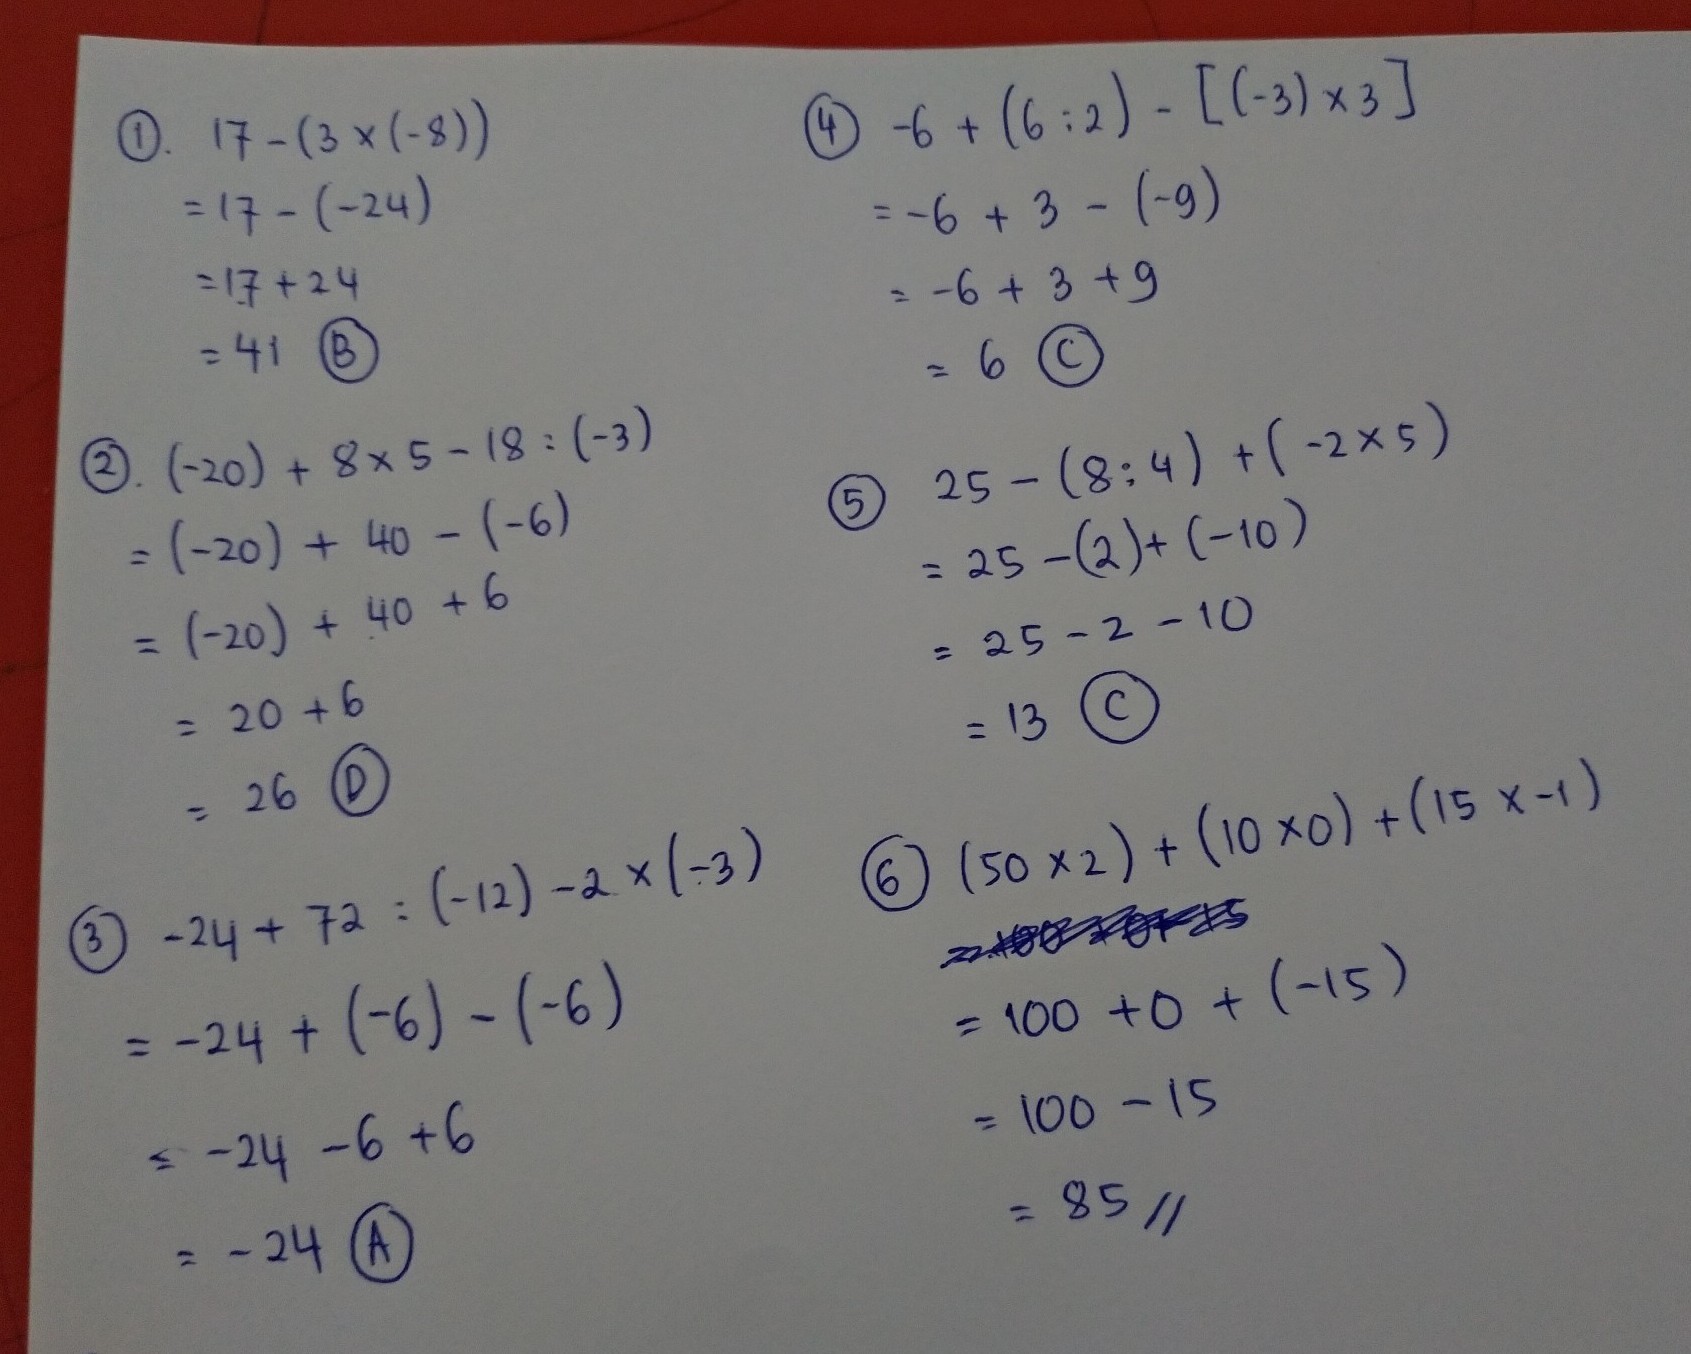 ①. 17 - (3 × (-8))
= 17 - (-24)
= 17 + 24
= 41 Ⓑ
②. (-20) + 8 × 5 - 18 : (-3)
= (-20) + 40 - (-6)
= (-20) + 40 + 6
= 20 + 6
= 26 Ⓓ
③ -24 + 72 : (-12) - 2 × (-3)
= -24 + (-6) - (-6)
= -24 - 6 + 6
= -24 Ⓐ
④ -6 + (6 : 2) - [(-3) × 3]
= -6 + 3 - (-9)
= -6 + 3 + 9
= 6 Ⓒ
⑤ 25 - (8 : 4) + (-2 × 5)
= 25 - (2) + (-10)
= 25 - 2 - 10
= 13 Ⓒ
⑥ (50 × 2) + (10 × 0) + (15 × -1)
= 100 + 0 + (-15)
= 100 - 15
= 85 //